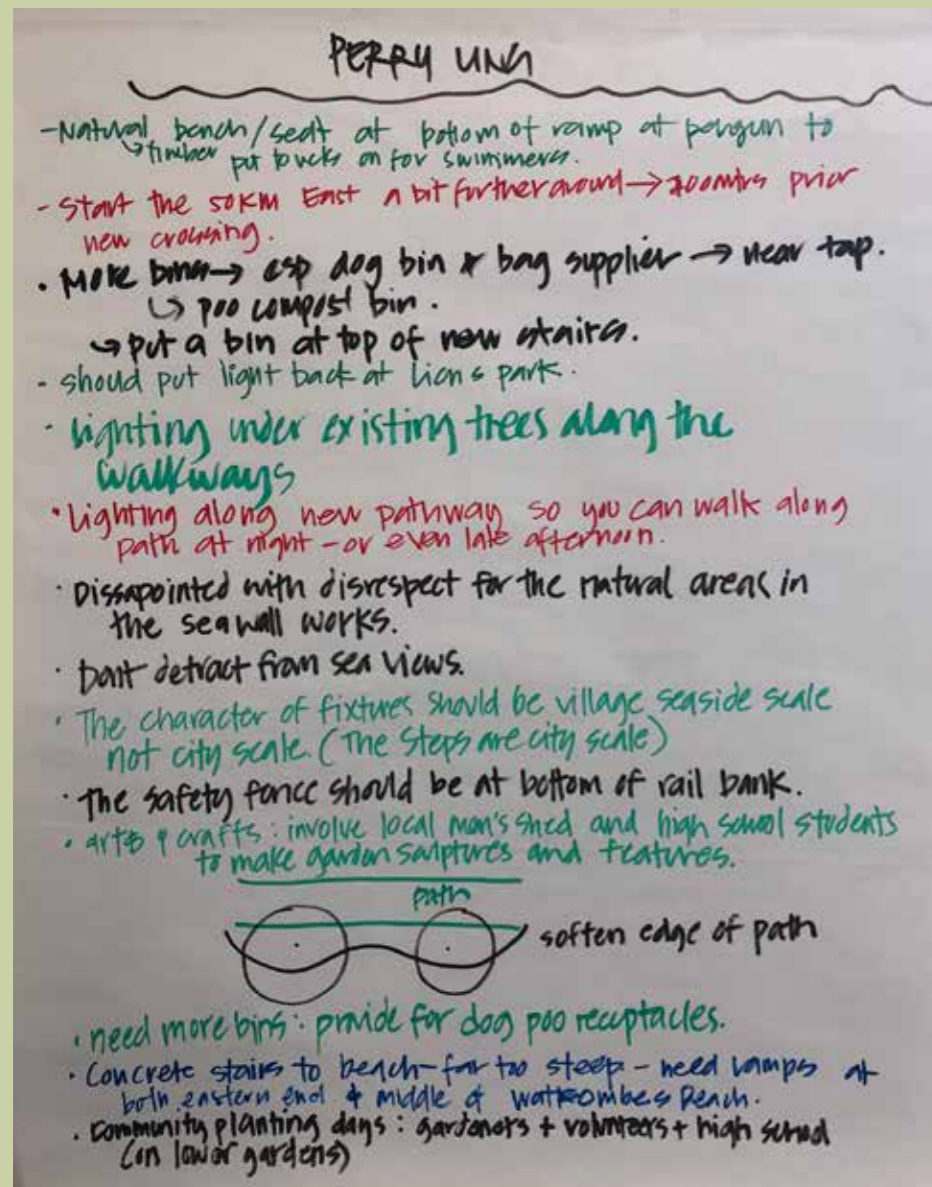 PERRY UNG
- Natural bench/seat at bottom of ramp at penguin to
↳ timber put towels on for swimmers.
- Start the 50KM East a bit further around → 200mtrs prior
new crossing.
• More bins → esp dog bin & bag supplier → near tap.
↳ poo compost bin.
↳ put a bin at top of new stairs.
- should put light back at Lions park.
· Lighting under existing trees along the
walkways
• Lighting along new pathway so you can walk along
path at night - or even late afternoon.
· Dissapointed with disrespect for the natural areas in
the seawall works.
· Dont detract from sea views.
· The character of fixtures should be village seaside scale
not city scale. (The steps are city scale)
· The safety fence should be at bottom of rail bank.
· arts & crafts : involve local men's shed and high school students
to make garden sculptures and features.
path
soften edge of path
· need more bins : provide for dog poo receptacles.
· Concrete stairs to beach - far too steep - need ramps at
both eastern end & middle of Beach.
· Community planting days : gardeners + volunteers + high school
(on lower gardens)